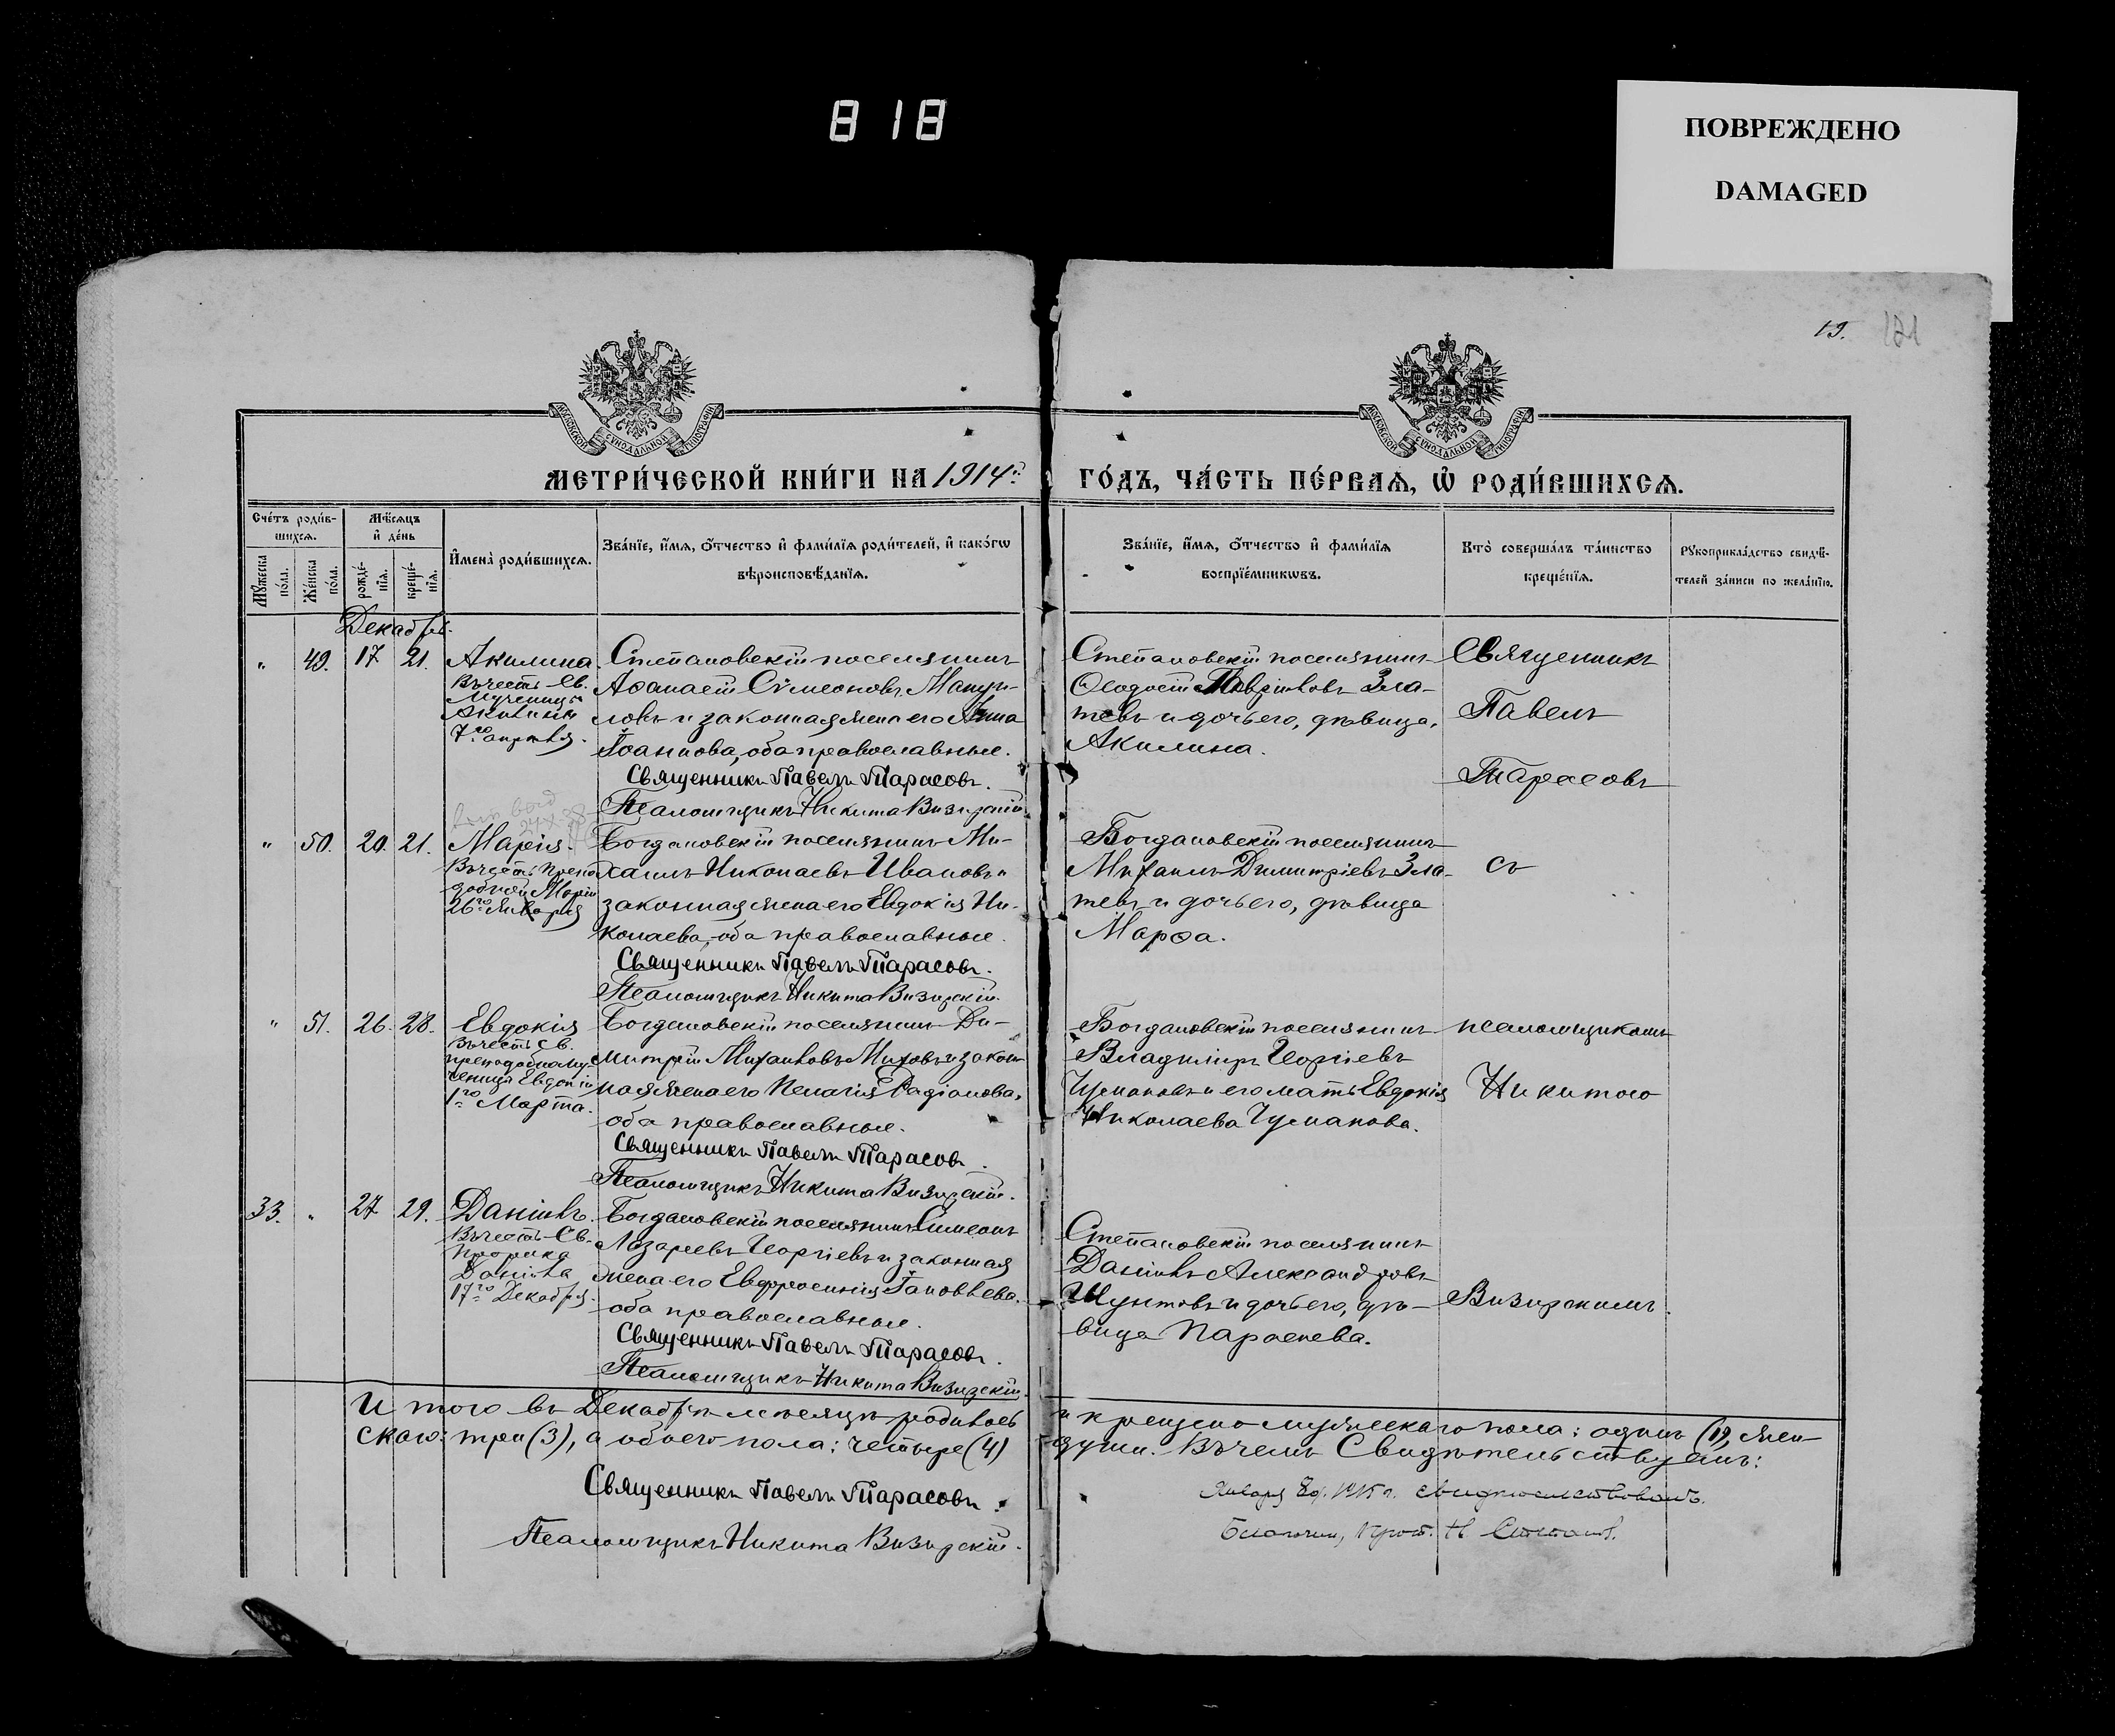 818
ПОВРЕЖДЕНО
DAMAGED
19. 121
МОСКОВСКОЙ СѴНОДАЛЬНОЙ ТИПОГРАФІИ
МОСКОВСКОЙ СѴНОДАЛЬНОЙ ТИПОГРАФІИ
МЕТРИ́ЧЕСКОЙ КНИ́ГИ НА 1914й
ГО́ДЪ, ЧА́СТЬ ПЕ́РВАѦ, Ѽ РОДИ́ВШИХСѦ.
Сче́тъ роди́в-
шихсѧ.
Мꙋ́жеска по́ла.
Же́нска по́ла.
Мѣ́сѧцъ
и҆ де́нь
рожде́-
нїѧ.
креще́-
нїѧ.
И҆мена̀ роди́вшихсѧ.
Зва́нїе, и҆́мѧ, ѻ҆́тчество и҆ фами́лїѧ роди́телей, и҆ како́гѡ
вѣроисповѣ́данїѧ.
Зва́нїе, и҆́мѧ, ѻ҆́тчество и҆ фами́лїѧ
воспрїе́мникѡвъ.
Кто̀ соверша́лъ та́инство
креще́нїѧ.
Рꙋкоприкла́дство свидѣ́-
телей за́писи по жела́нїю.
Декабрь.
" 49. 17 21. Акилина.
Въ честь Св.
Мученицы
Акилины
7го апрѣля.
Степановскій поселянинъ
Аѳанасій Сѵмеоновъ
ловъ и законная жена его Анна
Іоаннова, оба православные.
Священникъ Павелъ Тарасовъ.
Псаломщикъ Никита Визирскій
Степановскій поселянинъ
Ѳеодосій Зла-
тевъ и дочь его, дѣвица,
Акилина.
Священникъ
Павелъ
Тарасовъ
" 50. 20. 21. Марія.
Въ честь Препо
добной Маріи
26го Января
Богдановскій поселянинъ Ми-
хаилъ Николаевъ Ивановъ и
законная жена его Евдокія Ни-
колаева, оба православные.
Священникъ Павелъ Тарасовъ.
Псаломщикъ Никита Визирскій.
Богдановскій поселянинъ
Михаилъ Димитріевъ Зла-
тевъ и дочь его, дѣвица
Марѳа.
съ
" 51. 26. 28. Евдокія
Въ честь Св.
преподобному-
ченицы Евдокіи
1го Марта.
Богдановскій поселянинъ Ди-
митрій Михаиловъ Миховъ и закон
ная жена его Пелагія Радіонова,
оба православные.
Священникъ Павелъ Тарасовъ.
Псаломщикъ Никита Визирскій.
Богдановскій поселянинъ
Владиміръ Георгіевъ
Чумаковъ и его мать Евдокія
Николаева Чумакова.
псаломщикомъ
Никитою
33. " 27 29. Даніилъ.
Въ честь Св.
Пророка
Даніила
17го Декабря.
Богдановскій поселянинъ Симеонъ
Лазаревъ Георгіевъ и законная
жена его Евфросинія Іаковлева.
оба православные.
Священникъ Павелъ Тарасовъ.
Псаломщикъ Никита Визирскій.
Степановскій поселянинъ
Даніилъ Александровъ
Шунтовъ и дочь его, дѣ-
вица Параскева.
Визирскимъ.
Итого въ Декабрѣ мѣсяцѣ родилось и крещено мужескаго пола: одинъ (1), жен-
скаго: три (3), а обоего пола: четыре (4) души. Въ чемъ Свидѣтельствуемъ:
Священникъ Павелъ Тарасовъ.
Псаломщикъ Никита Визирскій.
Января 1915 г. свидѣтельствовалъ.
Благочин, Прот. Н